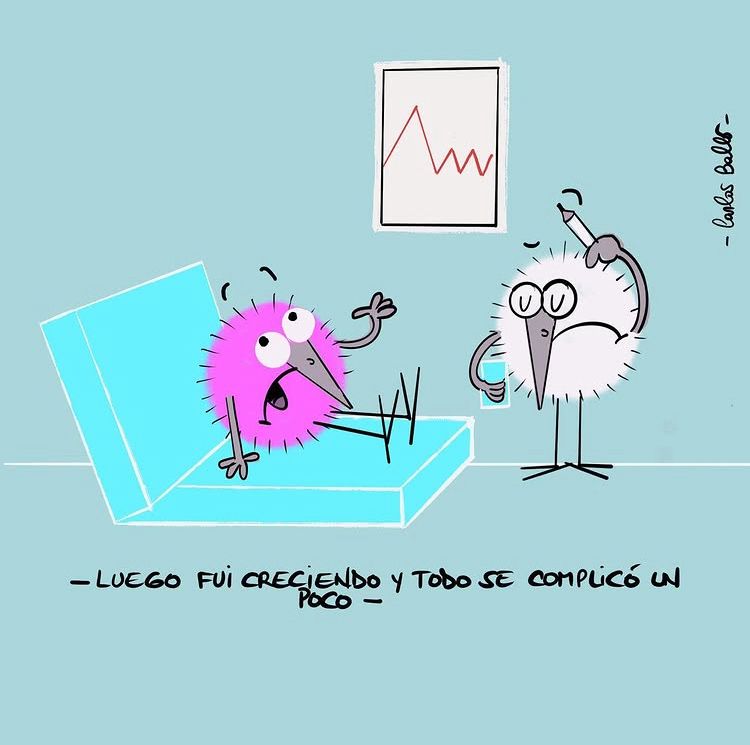 - Carlos Balls -
— LUEGO FUI CRECIENDO Y TODO SE COMPLICÓ UN
POCO —